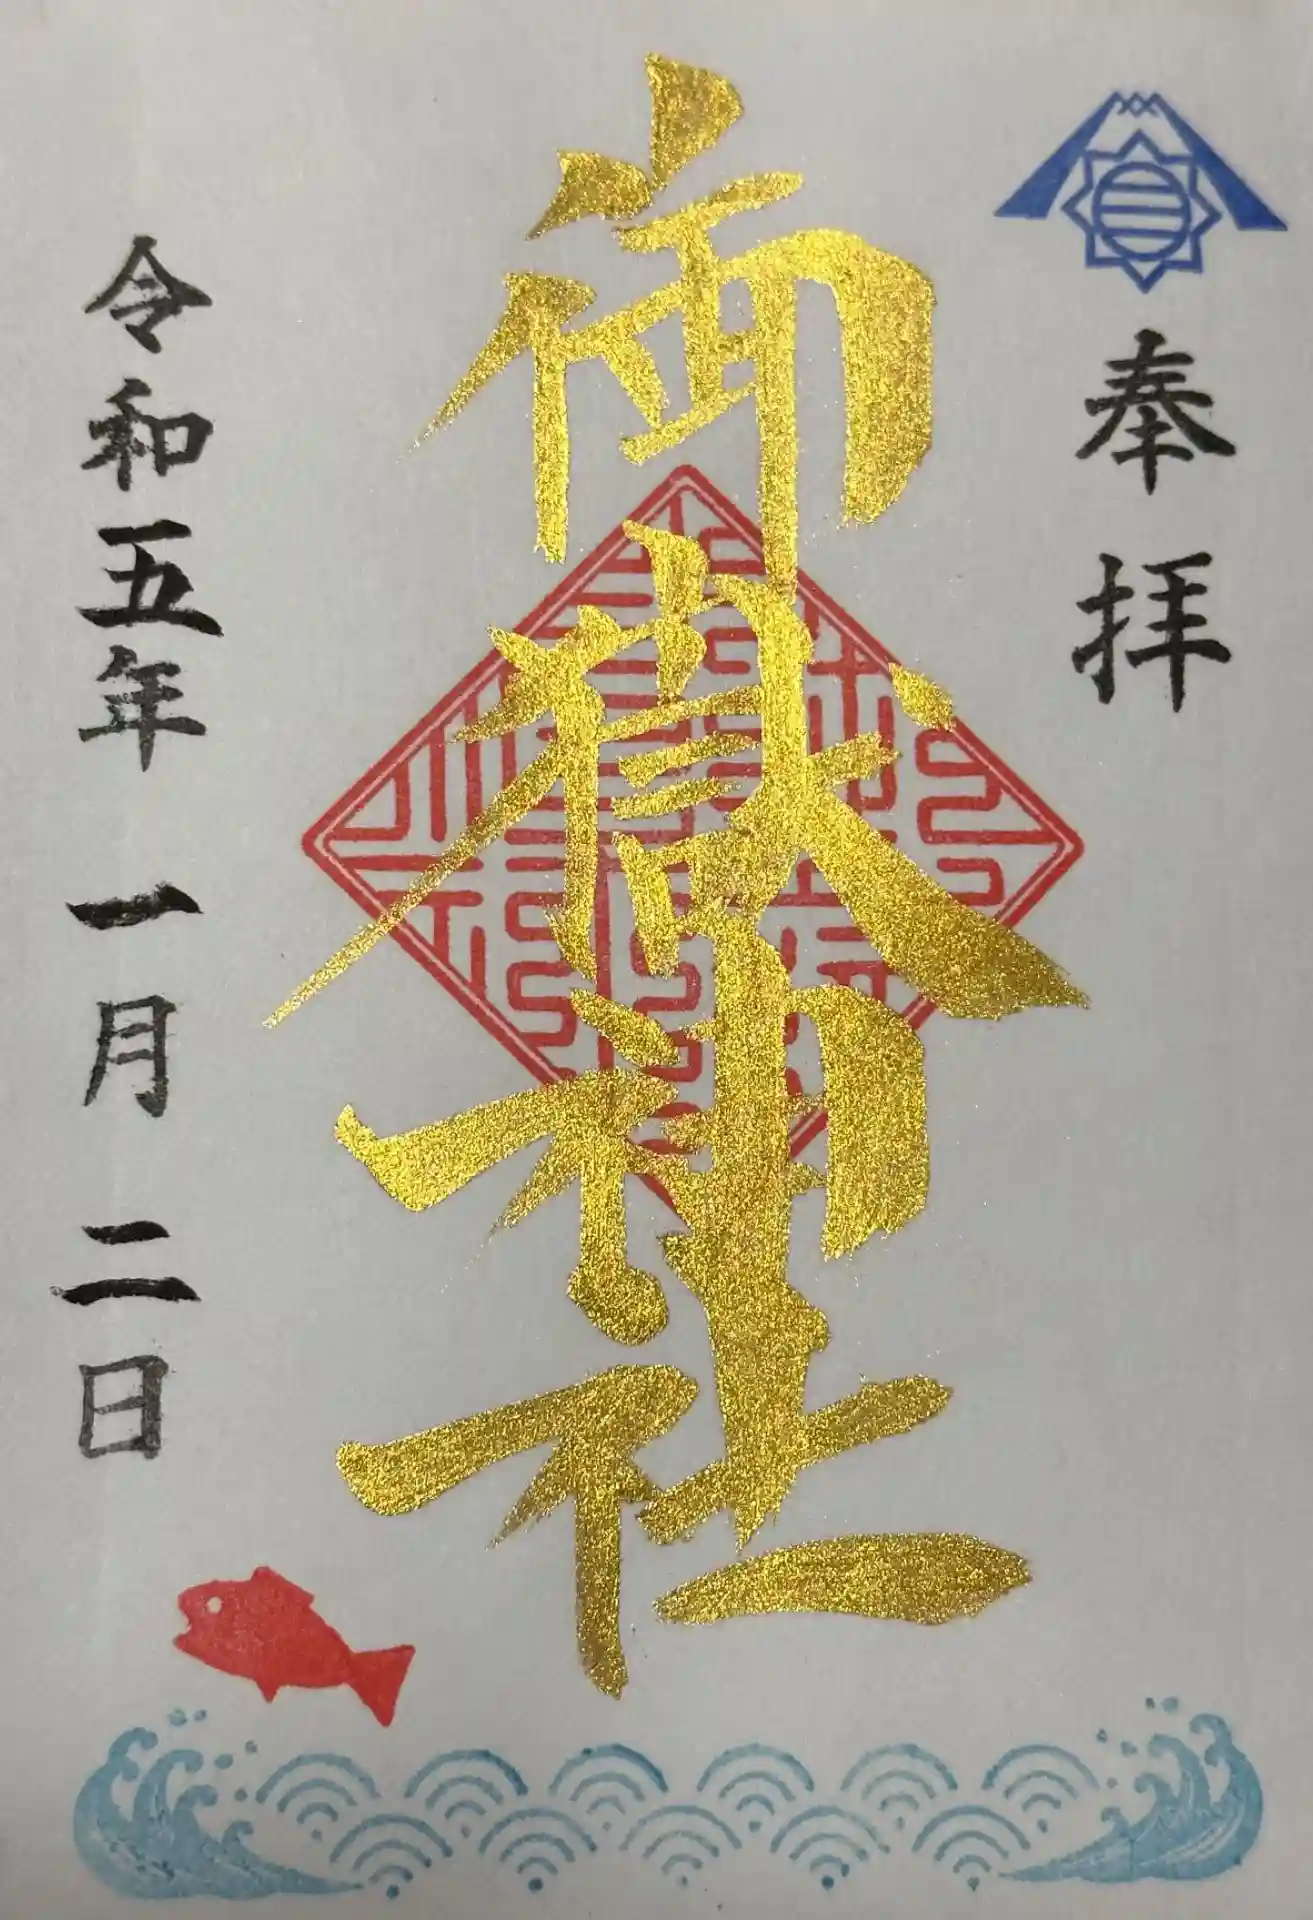 奉拝
御嶽神社
令和五年一月二日